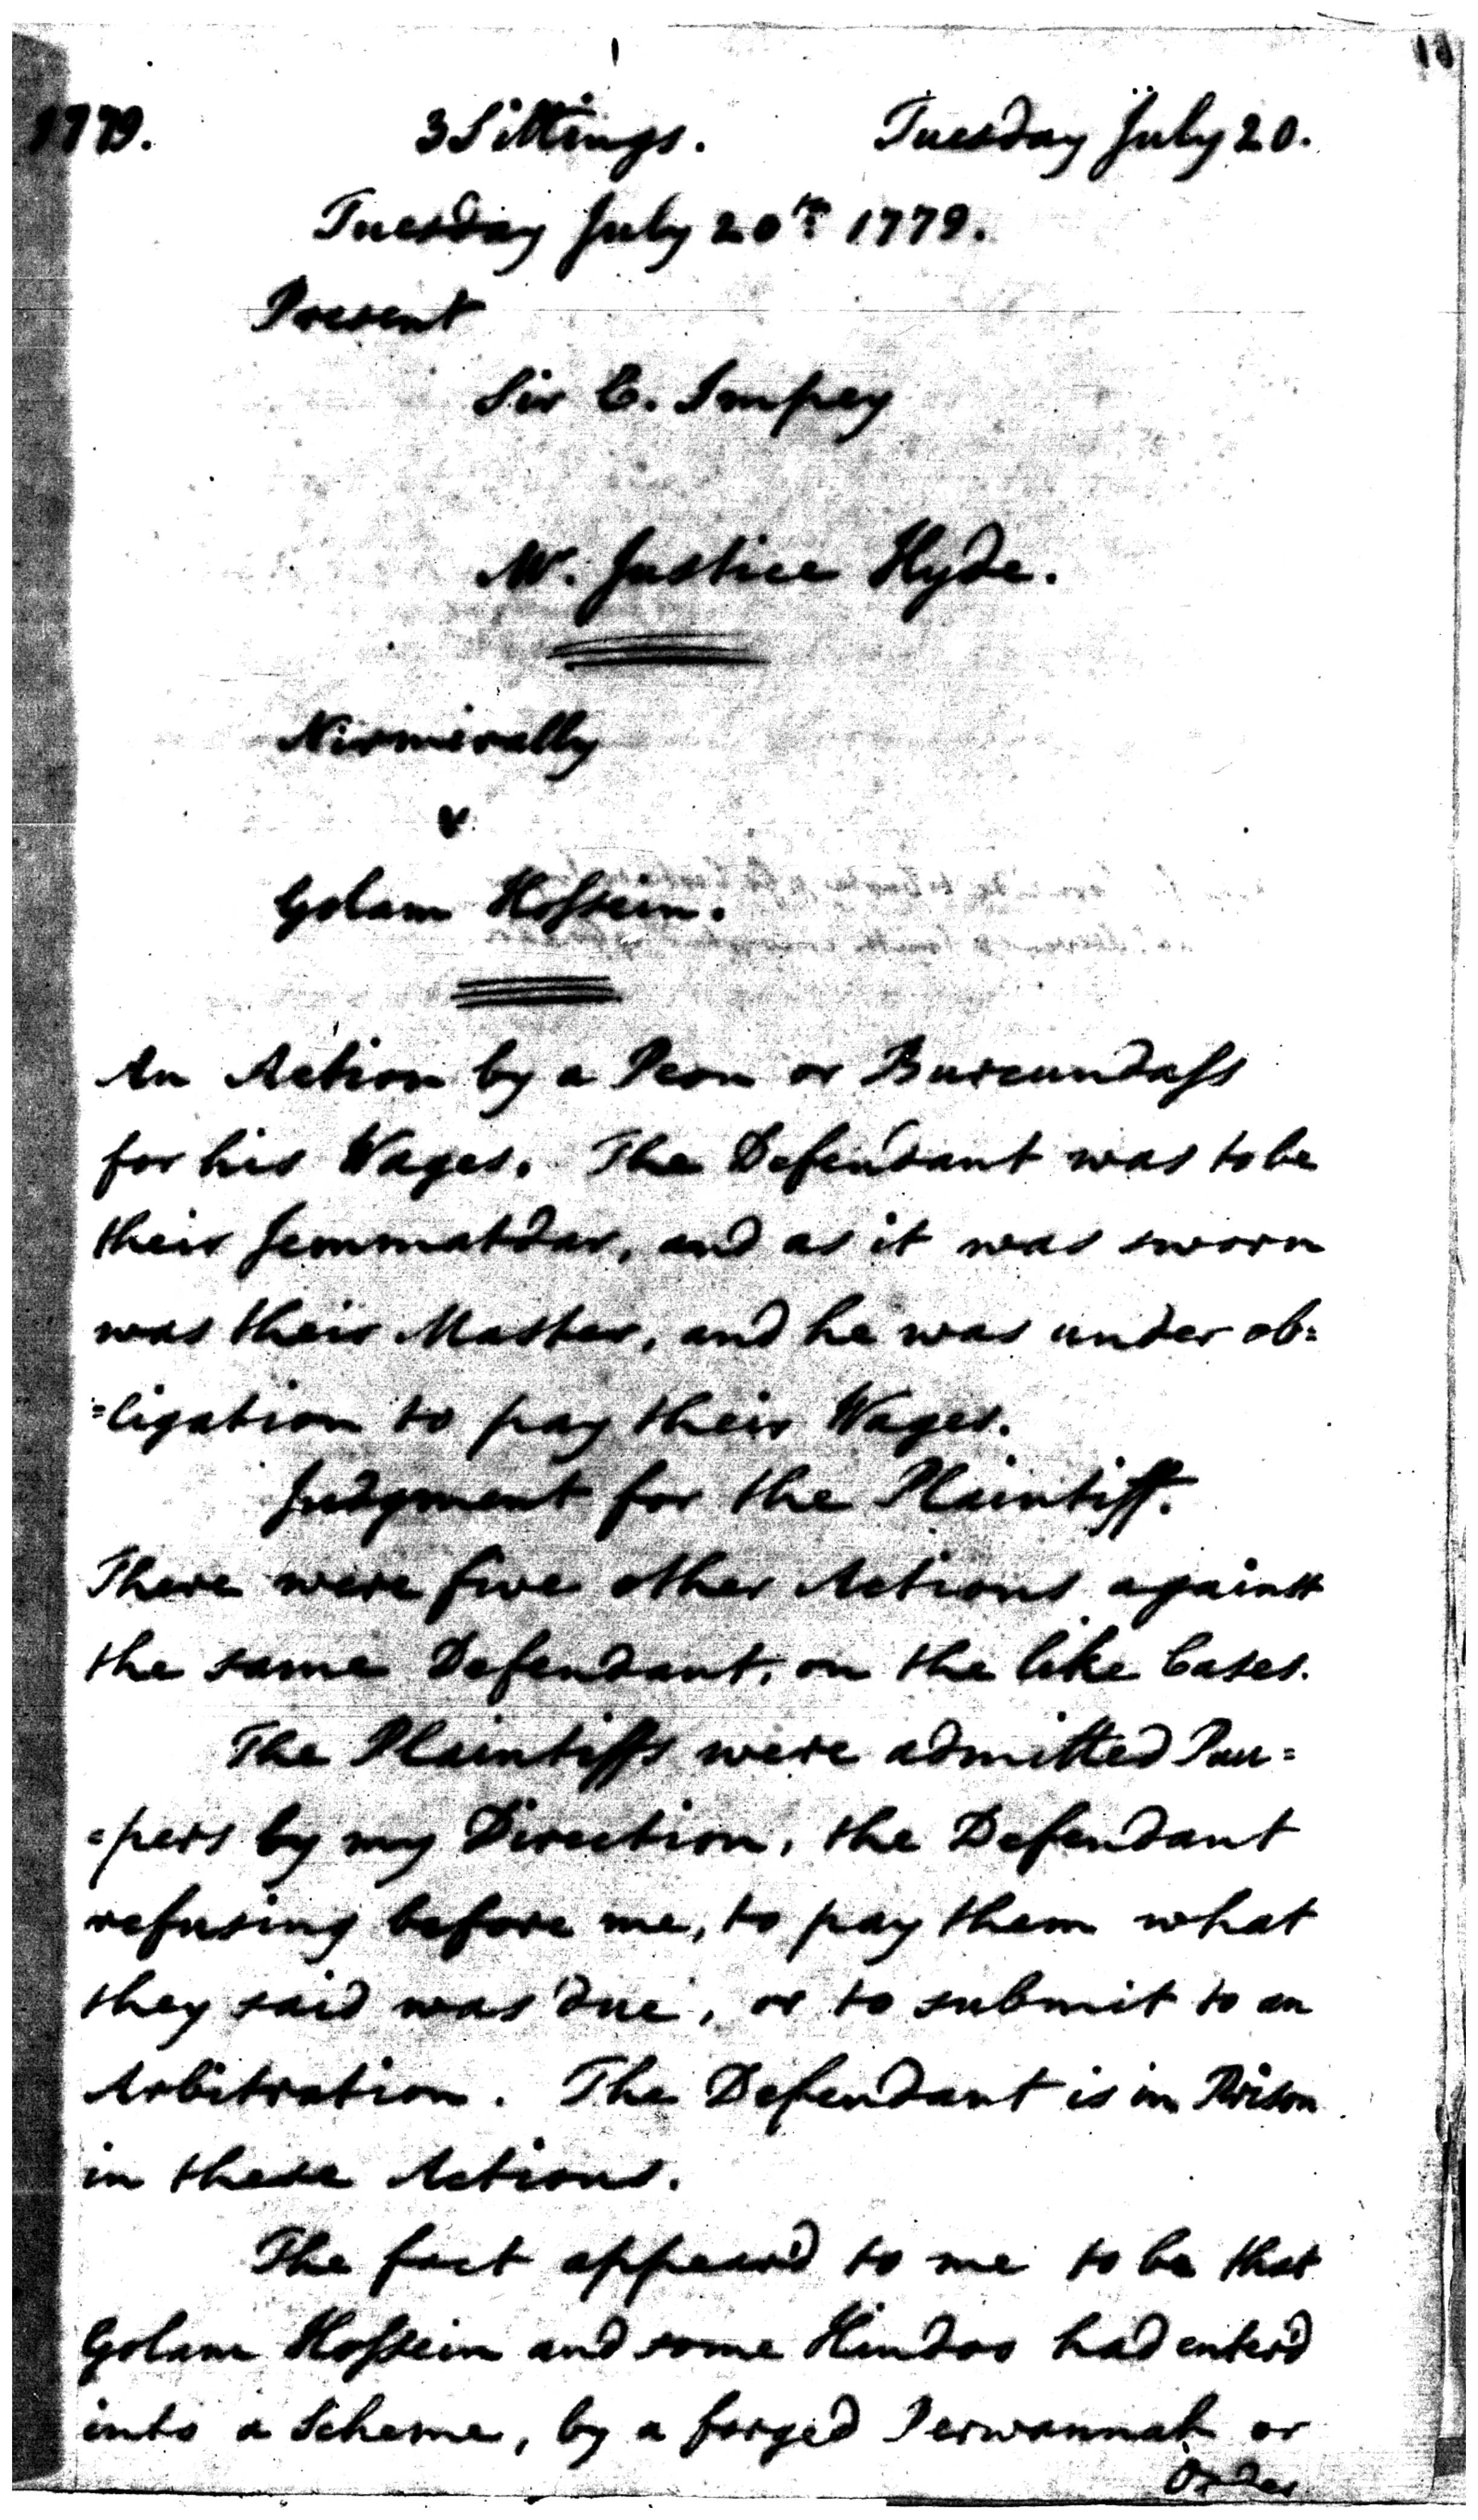 1779. 3 Sittings. Tuesday July 20.
Tuesday July 20th. 1779.
Present
Sir E. Impey
Mr. Justice Hyde.
Nirmerally
v
Golam Hossein.
An Action by a Peon or Burcundass
for his Wages. The Defendant was to be
their Jemmatdar, and as it was sworn
was their Master, and he was under ob=
=ligation to pay their Wages.
Judgment for the Plaintiff.
There were five other Actions against
the same Defendant, on the like Cases.
The Plaintiffs were admitted Pau=
=pers by my Direction, the Defendant
refusing before me, to pay them what
they said was due, or to submit to an
Arbitration. The Defendant is in Prison
in these Actions.
The fact appear'd to me to be that
Golam Hossein and some Hindoo had enter'd
into a Scheme, by a forged Perwannah or
Order